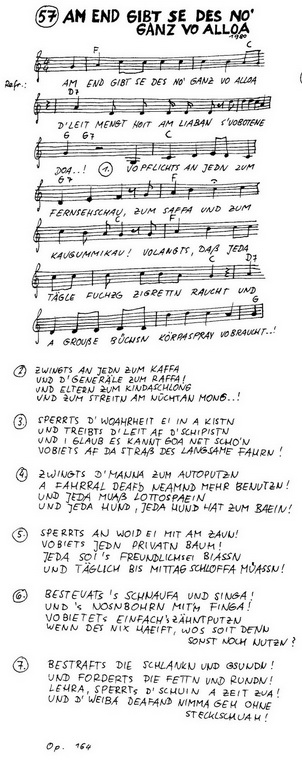 57 AM END GIBT SE DES NO'
GANZ VO ALLOA
1980
F C
Refr.: AM END GIBT SE DES NO' GANZ VO ALLOA
D7
D'LEIT MENGT HOIT AM LIABAN S'VOBOTENE
G G7 C
DOA..! 1. VOPFLICHTS AN JEDN ZUM
G7 F
FERNSEHSCHAU, ZUM SAFFA UND ZUM
C F
KAUGUMMIKAU! VOLANGTS, DAß JEDA
C D7
TÄGLE FUCHZG ZIGRETTN RAUCHT UND
G
A GROUßE BÜCHSN KÖRPASPRAY VOBRAUCHT..!
2. ZWINGTS AN JEDN ZUM KAFFA
UND D'GENERÄLE ZUM RAFFA!
UND ELTERN ZUM KINDASCHLONG
UND ZUM STREITN AM NÜCHTAN MONG..!
3. SPERRTS D'WOAHRHEIT EI IN A KISTN
UND TREIBTS D'LEIT AF D'SCHIPISTN
UND I GLAUB ES KANNT GOA NET SCHO'N
VOBIETS AF DA STRAß DES LANGSAME FAHRN!
4. ZWINGTS D'MANNA ZUM AUTOPUTZN
A FAHRRAL DEAFD NEAMND MEHR BENUTZN!
UND JEDA MUAß LOTTOSPAEIN
UND JEDA HUND, JEDA HUND HAT ZUM BAEIN!
5. SPERRTS AN WOID EI MIT AM ZAUN!
VOBIETS JEDN PRIVATN BAUM!
JEDA SOI'S FREUNDLICHSEI BIASSN
UND TÄGLICH BIS MITTAG SCHLOFFA MÜASSN!
6. BESTEUATS 'S SCHNAUFA UND SINGA!
UND 'S NOSNBOHRN MIT'M FINGA!
VOBIETETS EINFACH 'S ZÄHNTPUTZN
WENN DES NIX HAEIFT, WOS SOIT DENN
SONST NOCH NUTZN?
7. BESTRAFTS DIE SCHLANKN UND GSUNDN!
UND FORDERTS DIE FETTN UND RUNDN!
LEHRA, SPERRTS D'SCHUIN A ZEIT ZUA!
UND D'WEIBA DEAFAND NIMMA GEH OHNE
STECKLSCHUAH!
Op. 164